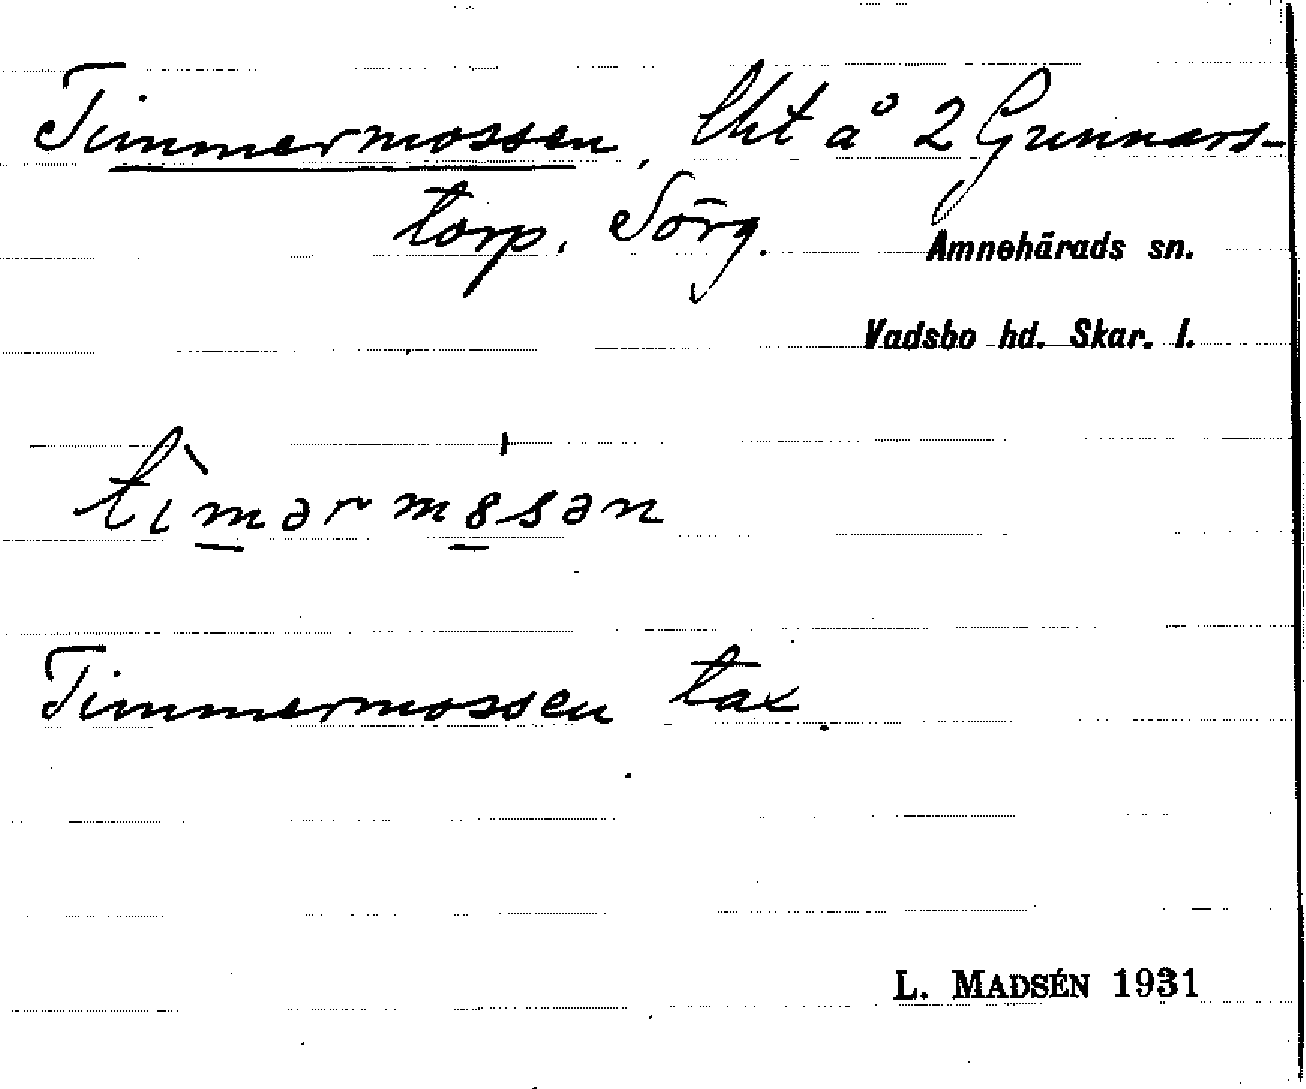 Timmermossen, lht å 2 Gunnars-
torp, Sörg.
Amnehärads sn.
Vadsbo hd. Skar. l.
Timmermossen tax.
L. MADSÉN 1931